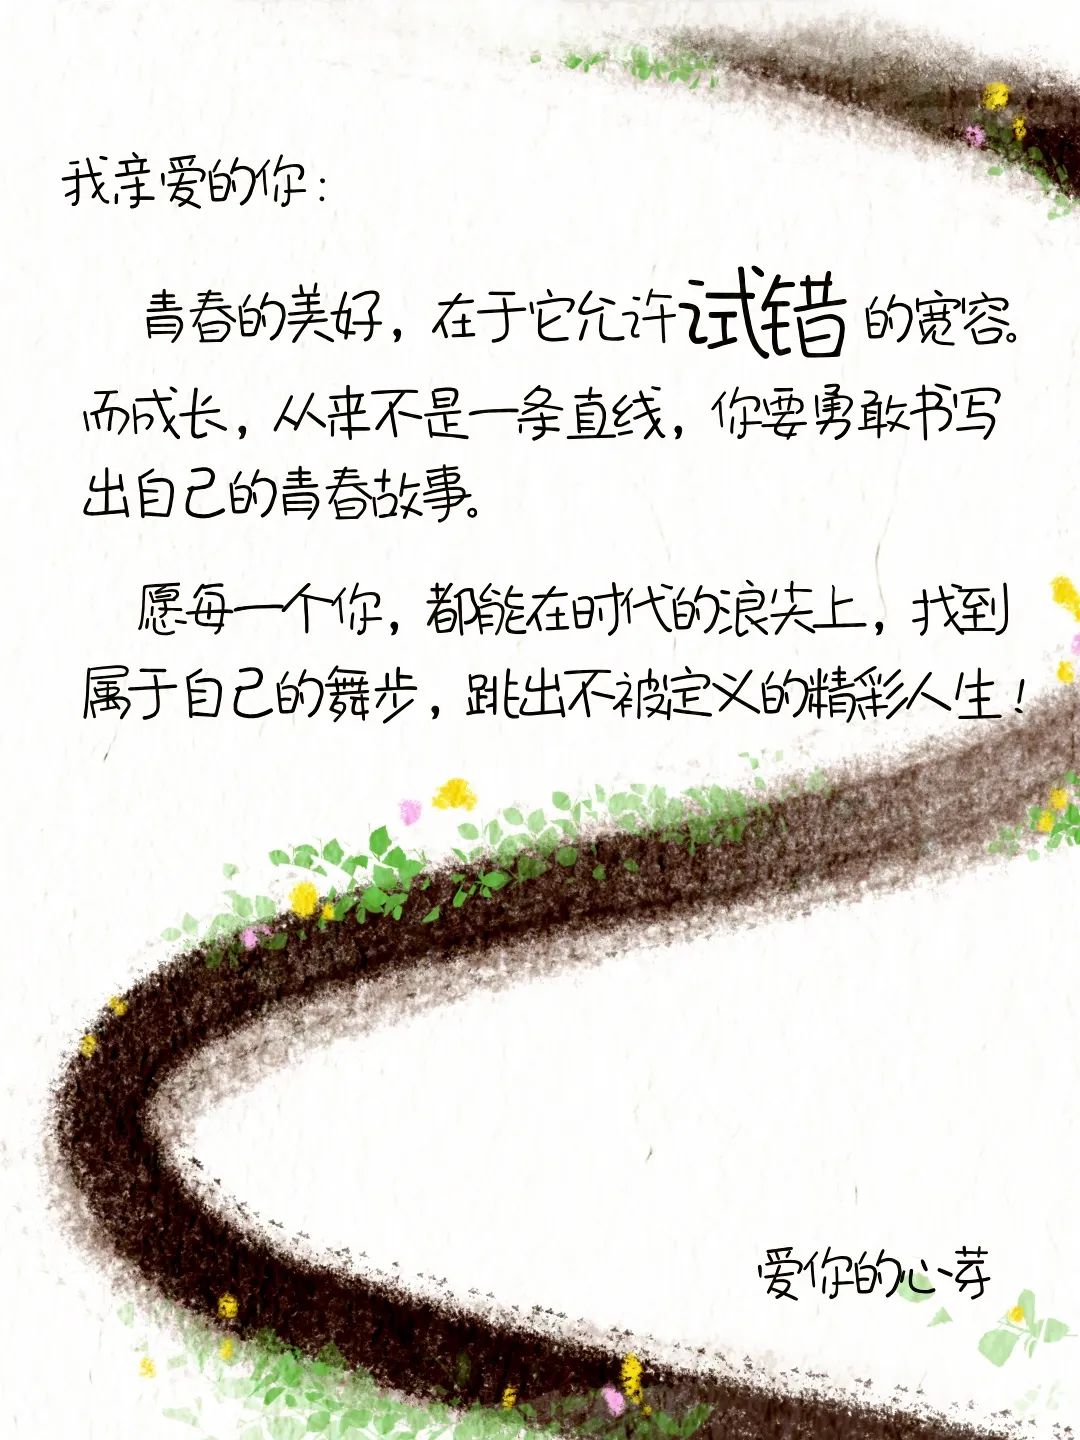 我亲爱的你：
青春的美好，在于它允许试错的宽容。
而成长，从来不是一条直线，你要勇敢书写
出自己的青春故事。
愿每一个你，都能在时代的浪尖上，找到
属于自己的舞步，跳出不被定义的精彩人生！
爱你的心芽